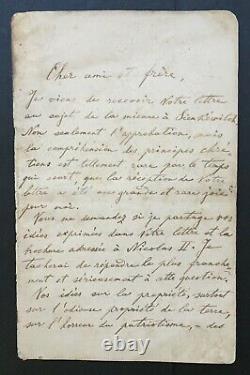 Cher ami et frère,
Je viens de recevoir Votre lettre
au sujet de la mienne à Sienkéwitch.
Non seulement l'approbation, mais
la compréhension des principes chré-
tiens est tellement rare par le temps
qui court, que la réception de Votre
lettre a été une grande et rare joie
pour moi.
Vous me demandez si je partage vos
idées exprimées dans Votre lettre et la
brochure adressée à Nicolas II. Je
tacherai de répondre le plus franche-
ment et sérieusement à cette question.
Vos idées sur la propriété, surtout
sur l'odieuse propriété de la terre,
sur l'horreur du patriotisme, - des